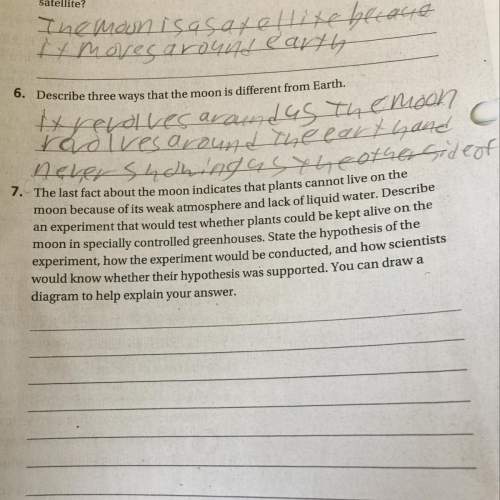 satellite?
The moon is a satellite because
it moves around earth
6. Describe three ways that the moon is different from Earth.
It revolves around us The moon
revolves around The earth and
never showing us the other side of
7. The last fact about the moon indicates that plants cannot live on the
moon because of its weak atmosphere and lack of liquid water. Describe
an experiment that would test whether plants could be kept alive on the
moon in specially controlled greenhouses. State the hypothesis of the
experiment, how the experiment would be conducted, and how scientists
would know whether their hypothesis was supported. You can draw a
diagram to help explain your answer.